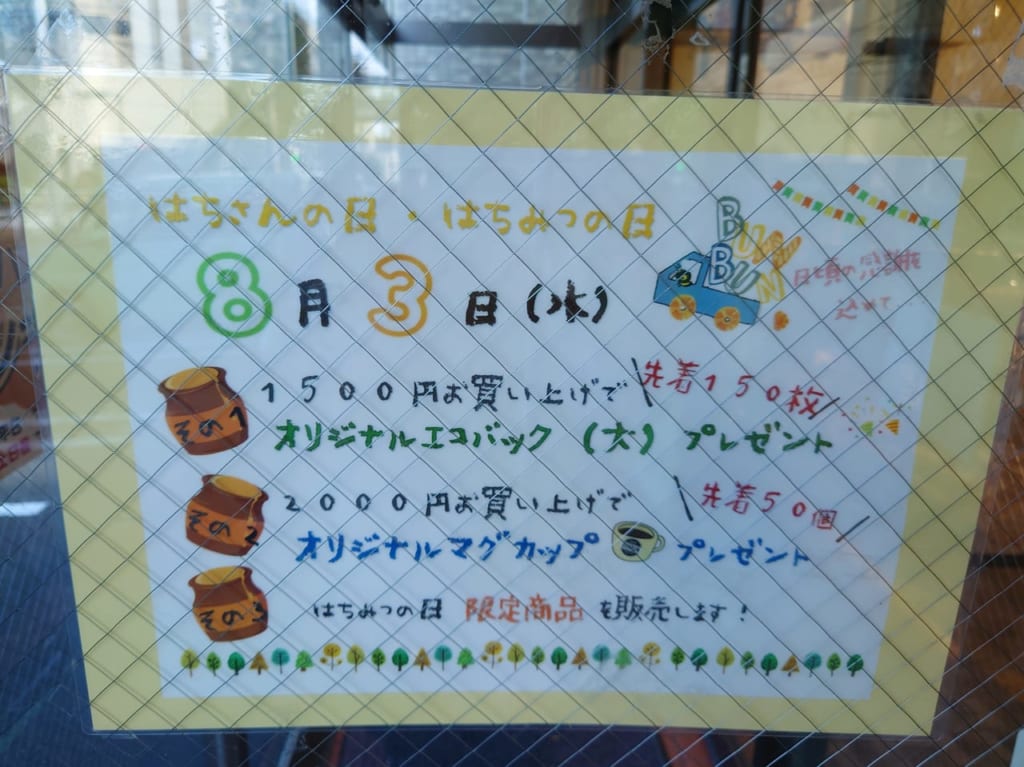 はちさんの日・はちみつの日
BUN BUN
日頃の感謝を
込めて
8月3日(水)
その1
1500円お買い上げで
先着150枚
オリジナルエコバック (大) プレゼント
その2
2000円お買い上げで
先着50個
オリジナルマグカップ プレゼント
その3
はちみつの日 限定商品 を販売します!